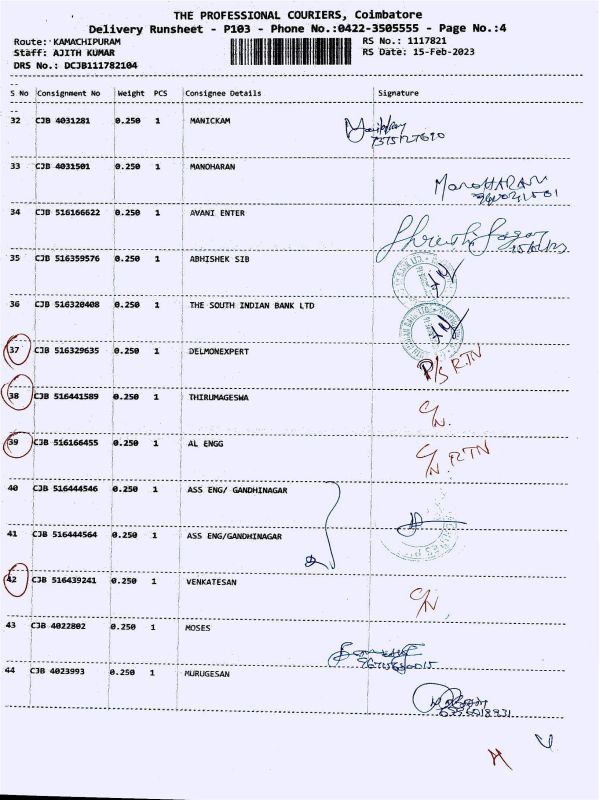 THE PROFESSIONAL COURIERS, Coimbatore
Delivery Runsheet - P103 - Phone No.:0422-3505555 - Page No.:4
Route: KAMACHIPURAM RS No.: 1117821
Staff: AJITH KUMAR RS Date: 15-Feb-2023
DRS No.: DCJB111782104
S No Consignment No Weight PCS Consignee Details Signature
32 CJB 4031281 0.250 1 MANICKAM
33 CJB 4031501 0.250 1 MANOHARAN
MANOHARAN
34 CJB 516166622 0.250 1 AVANI ENTER
35 CJB 516359576 0.250 1 ABHISHEK SIB
36 CJB 516320408 0.250 1 THE SOUTH INDIAN BANK LTD
37 CJB 516329635 0.250 1 DELMONEXPERT
P/S RTN
38 CJB 516441589 0.250 1 THIRUMAGESWA
C/N.
39 CJB 516166455 0.250 1 AL ENGG
C/N. RTN
40 CJB 516444546 0.250 1 ASS ENG/ GANDHINAGAR
41 CJB 516444564 0.250 1 ASS ENG/GANDHINAGAR
42 CJB 516439241 0.250 1 VENKATESAN
C/N
43 CJB 4022802 0.250 1 MOSES
44 CJB 4023993 0.250 1 MURUGESAN